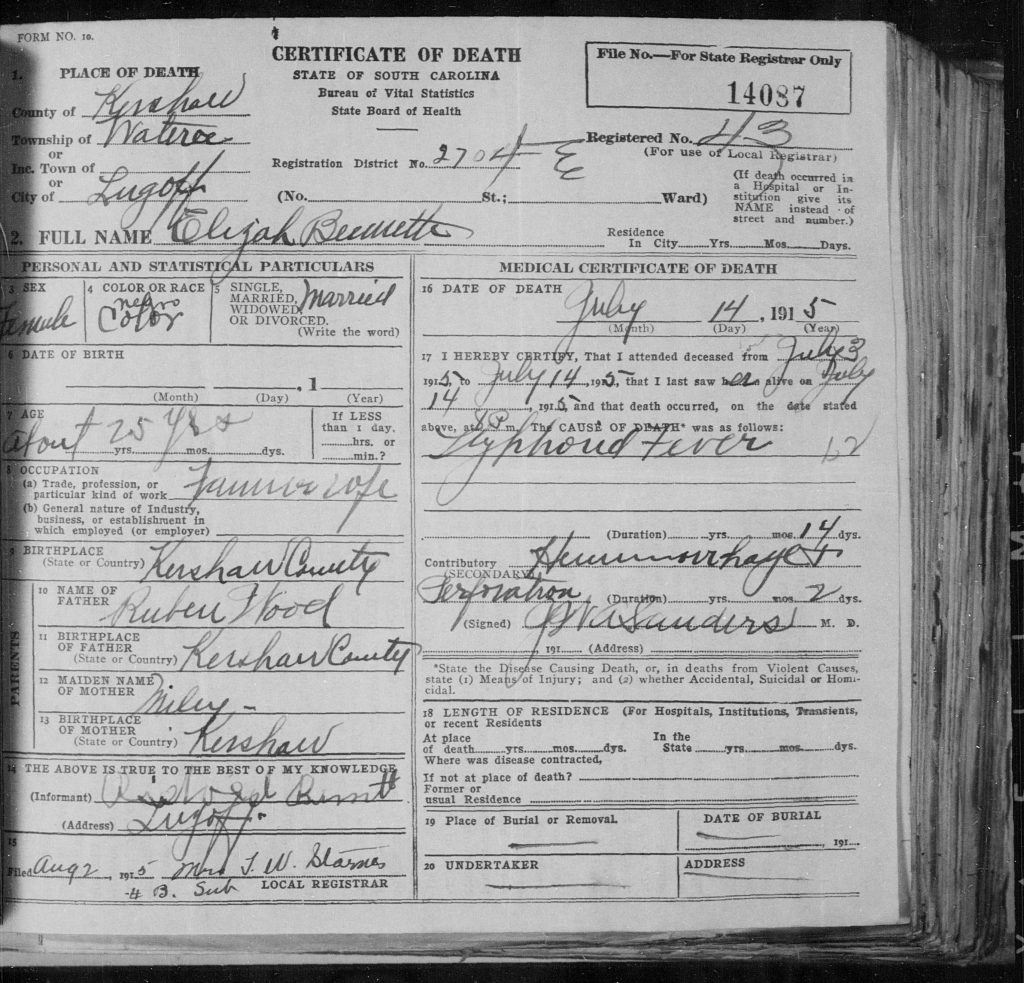 FORM NO. 10.
CERTIFICATE OF DEATH
STATE OF SOUTH CAROLINA
Bureau of Vital Statistics
State Board of Health
File No.—For State Registrar Only
14087
1. PLACE OF DEATH
County of Kershaw
Township of Wateree
or
Inc. Town of
or
City of Lugoff
Registration District No. 2704 E
Registered No. 43
(For use of Local Registrar)
(No. St.; Ward)
(If death occurred in a Hospital or Institution give its NAME instead of street and number.)
2. FULL NAME Elijah Bennette
Residence
In City Yrs. Mos. Days.
PERSONAL AND STATISTICAL PARTICULARS
3 SEX
Female
4 COLOR OR RACE
negro
Color
5 SINGLE, MARRIED, WIDOWED OR DIVORCED.
(Write the word)
Married
6 DATE OF BIRTH
, 1
(Month) (Day) (Year)
7 AGE
about 25 yrs
yrs. mos. dys.
If LESS than 1 day.
hrs. or
min.?
8 OCCUPATION
(a) Trade, profession, or particular kind of work
(b) General nature of Industry, business, or establishment in which employed (or employer)
9 BIRTHPLACE
(State or Country) Kershaw County
PARENTS
10 NAME OF FATHER Ruben Wood
11 BIRTHPLACE OF FATHER
(State or Country) Kershaw County
12 MAIDEN NAME OF MOTHER Miley -
13 BIRTHPLACE OF MOTHER
(State or Country) Kershaw
14 THE ABOVE IS TRUE TO THE BEST OF MY KNOWLEDGE
(Informant)
(Address) Lugoff
15
Filed Aug 2, 1915 Mrs T. W. Starnes
4 B. Sub LOCAL REGISTRAR
MEDICAL CERTIFICATE OF DEATH
16 DATE OF DEATH
July 14, 1915
(Month) (Day) (Year)
17 I HEREBY CERTIFY, That I attended deceased from July 3
1915, to July 14, 1915, that I last saw her alive on July
14, 1915 and that death occurred, on the date stated
above, at P m. The CAUSE OF DEATH* was as follows:
Typhoid Fever
(Duration) yrs. mos. 14 dys.
Contributory Hemmorrhage +
(SECONDARY)
Perforation (Duration) yrs. mos. 2 dys.
(Signed) Sanders M. D.
, 191 (Address)
*State the Disease Causing Death, or, in deaths from Violent Causes, state (1) Means of Injury; and (2) whether Accidental, Suicidal or Homicidal.
18 LENGTH OF RESIDENCE (For Hospitals, Institutions, Transients, or recent Residents
At place of death yrs. mos. dys.
In the State yrs. mos. dys.
Where was disease contracted,
If not at place of death?
Former or usual Residence
19 Place of Burial or Removal
DATE OF BURIAL
, 191
20 UNDERTAKER
ADDRESS